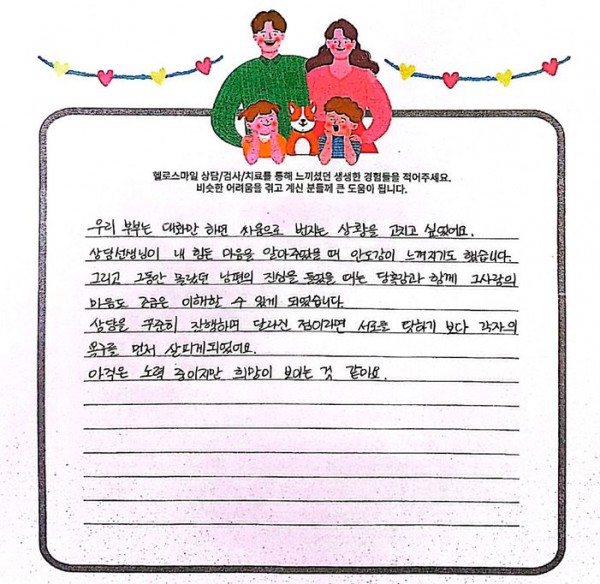 헬로스마일 상담/검사/치료를 통해 느끼셨던 생생한 경험들을 적어주세요.
비슷한 어려움을 겪고 계신 분들께 큰 도움이 됩니다.
우리 부부는 대화만 하면 싸움으로 번지는 상황을 고치고 싶었어요.
상담선생님이 내 힘든 마음을 알아주셨을 때 안도감이 느껴지기도 했습니다.
그리고 그동안 몰랐던 남편의 진심을 들었을 때는 당혹감과 함께 그사람의
마음도 조금은 이해할 수 있게 되었습니다.
상담을 꾸준히 진행하며 달라진 점이라면 서로를 탓하기 보다 각자의
욕구를 먼저 살피게되었어요.
아직은 노력 중이지만 희망이 보이는 것 같아요.